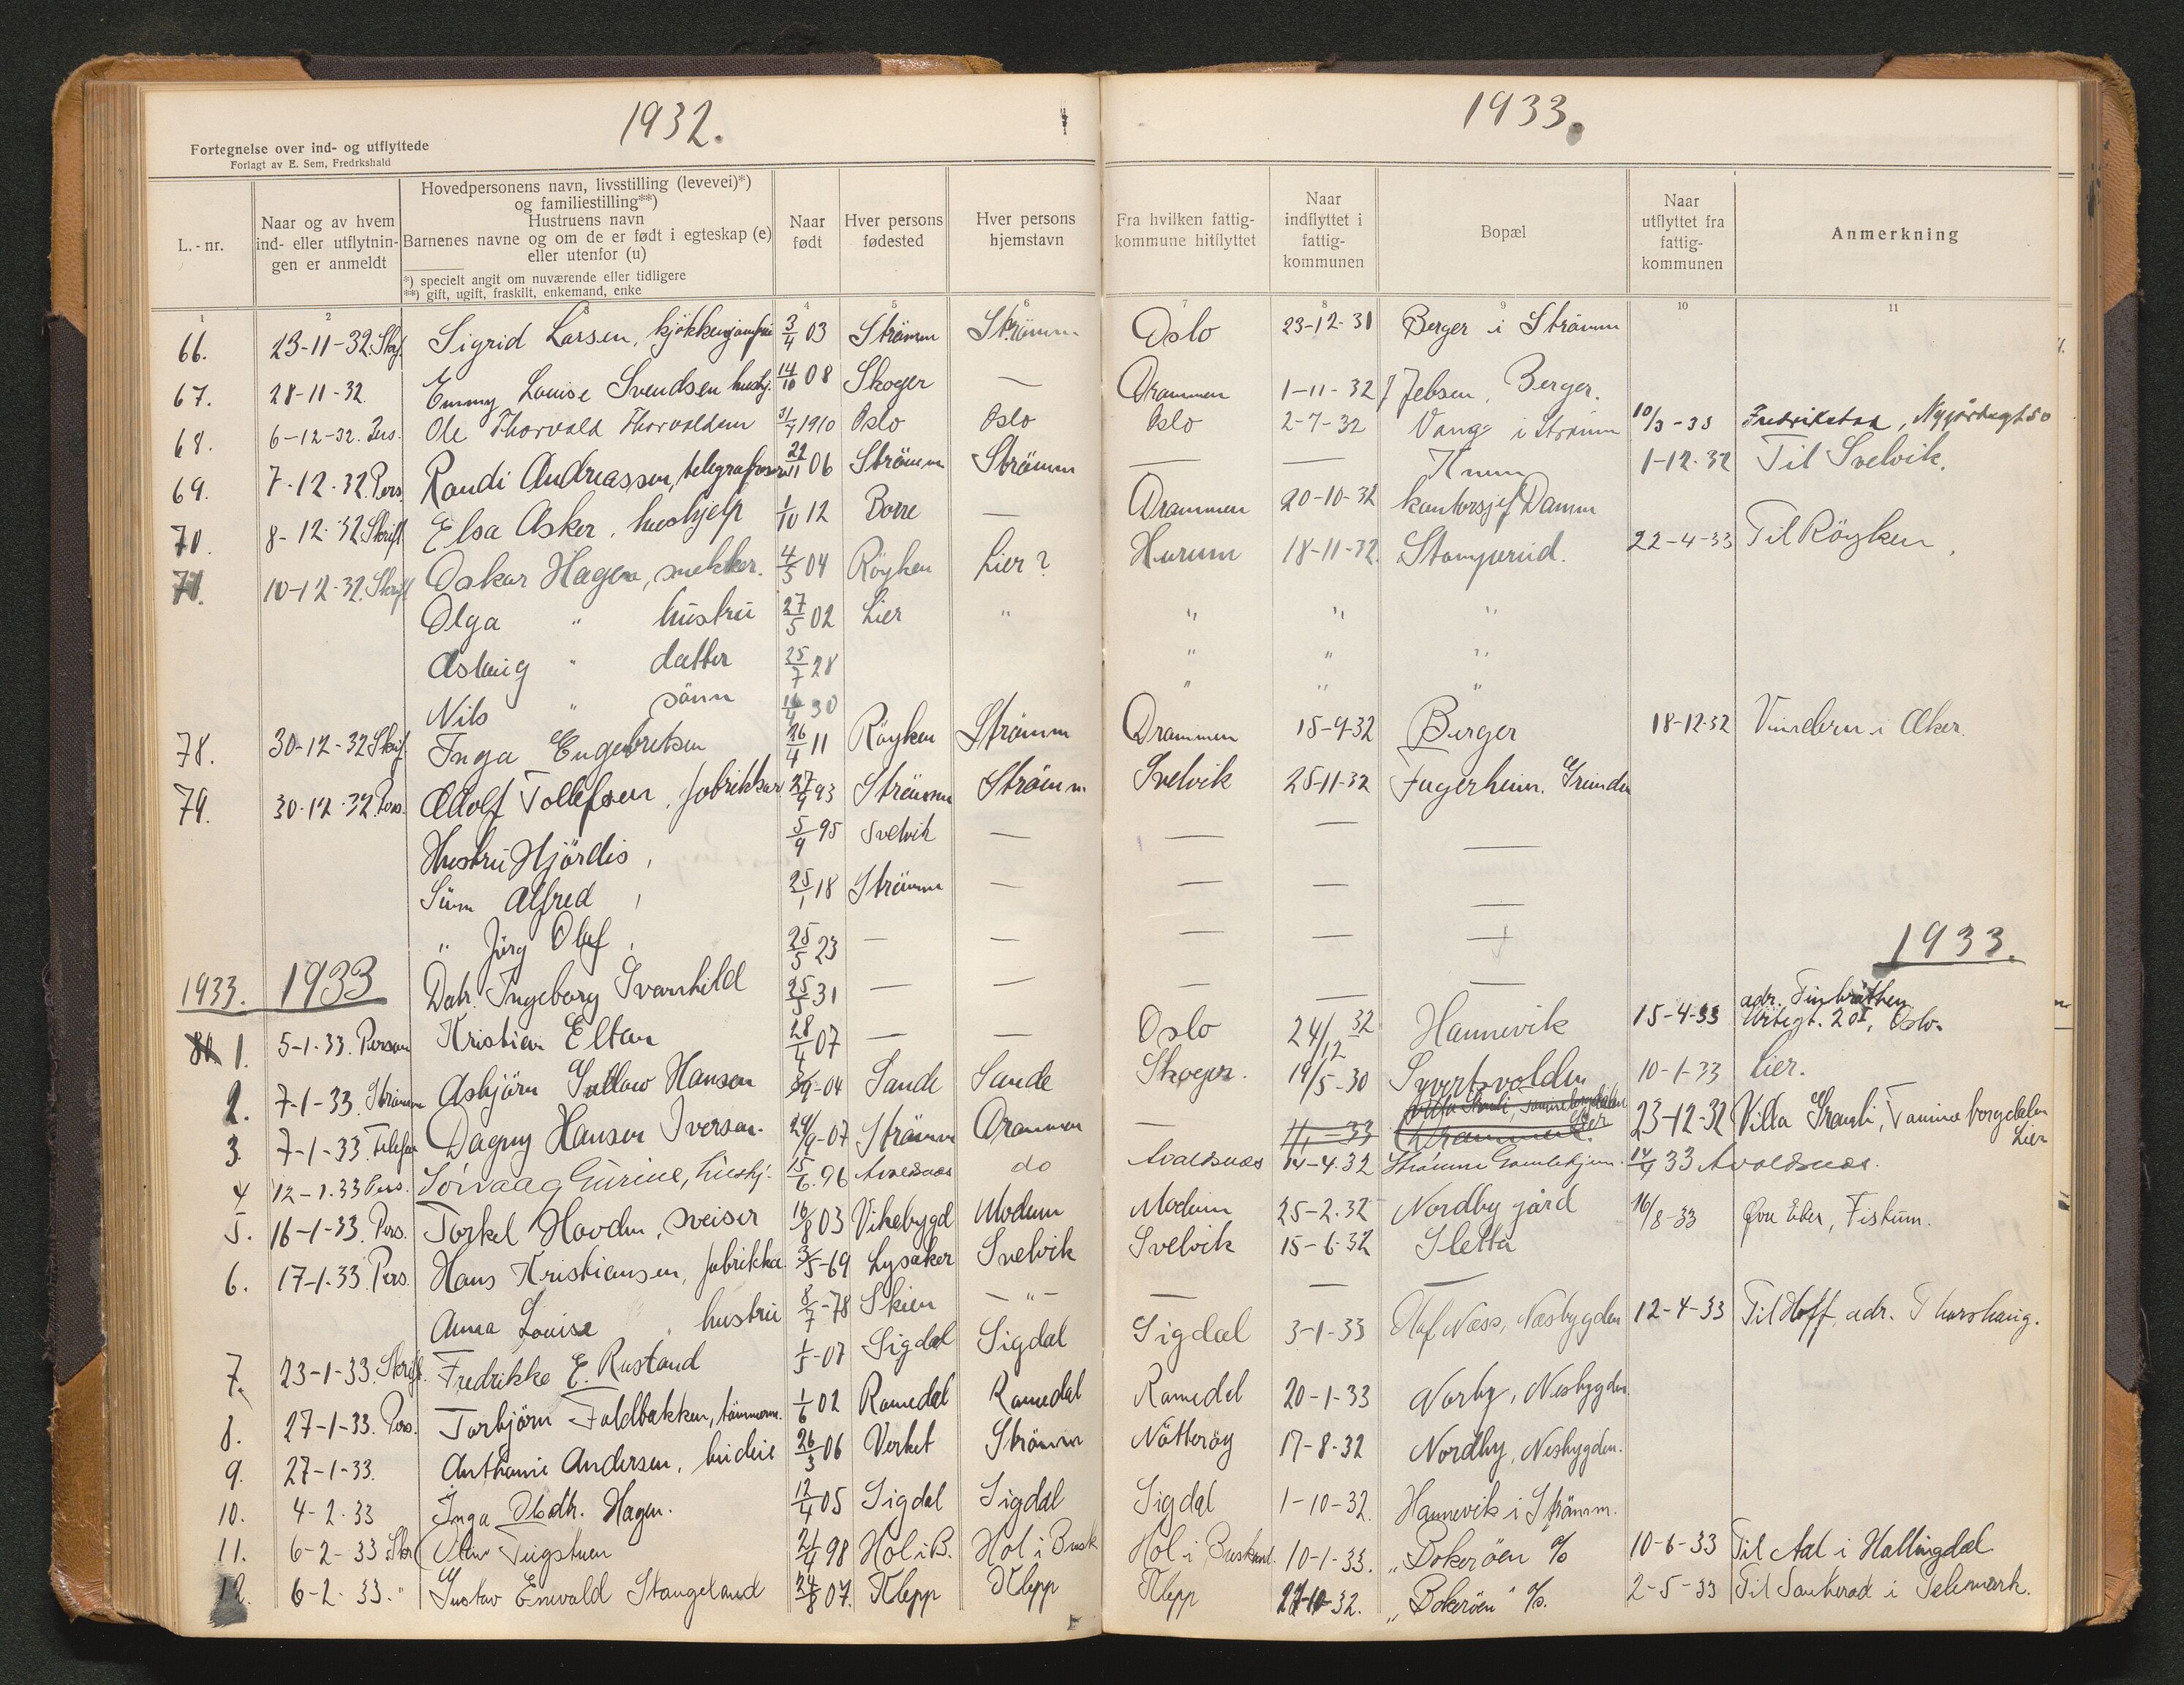 1932.
Fortegnelse over ind- og utflyttede
Forlagt av E. Sem, Fredrkshald
L.-nr.
Naar og av hvem
ind- eller utflytnin-
gen er anmeldt
Hovedpersonens navn, livsstilling (levevei)*)
og familiestilling**)
Hustruens navn
Barnenes navne og om de er født i egteskap (e)
eller utenfor (u)
*) specielt angit om nuværende eller tidligere
**) gift, ugift, fraskilt, enkemand, enke
Naar
født
Hver persons
fødested
Hver persons
hjemstavn
1933.
Fra hvilken fattig-
kommune hitflyttet
Naar
indflyttet i
fattig-
kommunen
Bopæl
Naar
utflyttet fra
fattig-
kommunen
Anmerkning
1 2 4 5 6 7 8 9 10 11
66. 23-11-32. Skr. Sigrid Larsen, kjøkken 3/4 03 Strömm Strömm Oslo 23-12-31 Berger i Strömm
67. 28-11-32. Emmy Louise Svendsen hushj. 14/10 08 Skoger — Drammen 1-11-32 Jebsen, Berger.
68. 6-12-32. Pers. Ole Thorvald Thorvaldsen 1910 Oslo Oslo Oslo 2-7-32 Vang i Strömm 10/3-33 Fredrikstad,
69. 7-12-32. Pers Randi Andreassen, 22/11 06 Strömm Strömm — — 1-12-32 Til Svelvik.
70. 8-12-32 Skrift Elsa Asker, hushjelp 1/10 12 Borre — Drammen 20-10-32 kontorsjef Damm
71. 10-12-32. Skrift Oskar Hagen, snekker. 4/3 04 Röyken Lier? Hurum 18-11-32. Stamperud. 22-4-33 Til Röyken.
Olga " hustru 27/5 02 Lier " " " "
Aslaug " datter 25/7 28 " " "
Nils " sönn 30 " " "
78. 30-12-32 Skrif Inga Engebretsen 26/4 11 Röyken Strömm Drammen 15-9-32 Berger 18-12-32 Vindern i Aker.
79. 30-12-32. Pers. Adolf Tollefsen, fabrikkar 27/9 93 Strömm Strömm Svelvik 25-11-32 Fagerheim. Grunden
Hustru Hjördis, 5/9 95 Svelvik — — — —
Sönn Alfred, 25/1 18 Strömm — — — —
" Olaf, 25/5 23 — — — — —
1933.
1933. 1933 Datr. Ingeborg Svanhild 25/5 31 — — — — —
1. 5-1-33. Person Kristian Eltan 28/4 07 — — Oslo 24/12 32 Hannevik 15-4-33 adr. Oslo.
2. 7-1-33. Strömm Asbjörn Gullow Hansen 04 Sande Sande Skoger. 19/5-30 Syvertsvolden 10-1-33 Lier.
3. 7-1-33. Telefon Dagny Hansen Iversen. 24/9-07 Strömm Drammen — 23-12-32 Villa Granli, Tanine borgdalen Lier
4 12-1-33 Pers. Sörvaag Gurine, hushj. 15/6. 96 Avaldsnes do Avaldsnes 14-4-32 Strömm Gamlehjem. 14/4 33 Avaldsnes.
5. 16-1-33. Pers. Torkel Hovden, sveiser 16/8 03 Vikebygd Modum Modum 25-2-32 Nordby gård 16/8-33 Fiskum.
6. 17-1-33. Pers. Hans Kristiansen, fabrikka 3/5-69 Lysaker Svelvik Svelvik 15-6-32 Sletta
Anna Louise " hustru 8/7-78 Skien — " — — — —
7. 23-1-33. Skrift. Fredrikke E. Rustand 1/5-07 Sigdal Sigdal Sigdal 3-1-33 Olaf Næss, Næsbygden 12-4-33 Til Hoff, adr. Thorshaug.
8. 27-1-33. Pers. Torbjörn Foldbakken, tömmerm. 1/6 02 Ramedal Ramedal Ramedal 20-1-33 Norby, Nesbygden
9. 27-1-33. Anthonie Andersen, budeie 26/3 06 Verket Strömm Nötteröy 17-8-32 Nordby, Nesbygden.
10. 4-2-33 Inga Olsdtr. Hagen. 12/4 05 Sigdal Sigdal Sigdal 1-10-32. Hannevik i Strömm.
11. 6-2-33 Skr 21/4 98 Hol i B. Hol i Busk Hol i Buskerud. 10-1-33. "Bokeröen" 10-6-33 Til Aal i Hallingdal
12. 6-2-33. " Gustav Enevald Stangeland 24/8 07. Klepp Klepp Klepp 27-10-32. "Bokeröen" 2-5-33 Til Saukerad i Telemark.